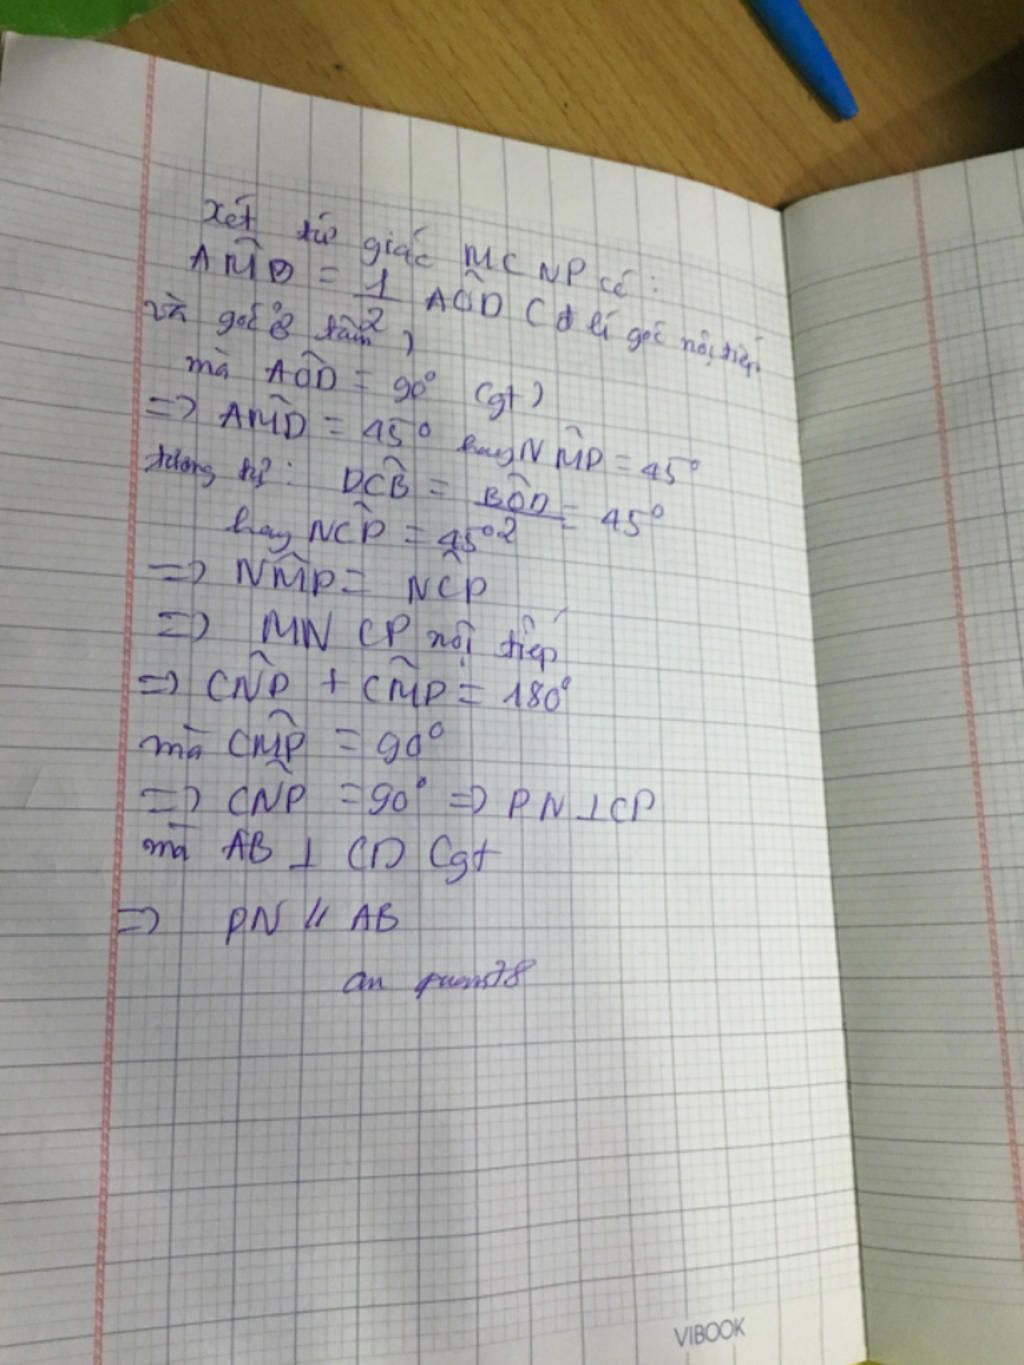 Xét tứ giác MCNP có:
AM̂D = 1/2 AÔD (đ lí góc nội tiếp
và góc ở tâm)
mà AÔD = 90° (gt)
=> AM̂D = 45° hay NM̂P = 45°
tương tự: DĈB = BÔD/2 = 45°
hay NĈP = 45°
=> NM̂P = NĈP
=> MNCP nội tiếp
=> CN̂P + CM̂P = 180°
mà CM̂P = 90°
=> CN̂P = 90° => PN⊥CP
mà AB ⊥ CD (gt
=> PN // AB
an
VIBOOK